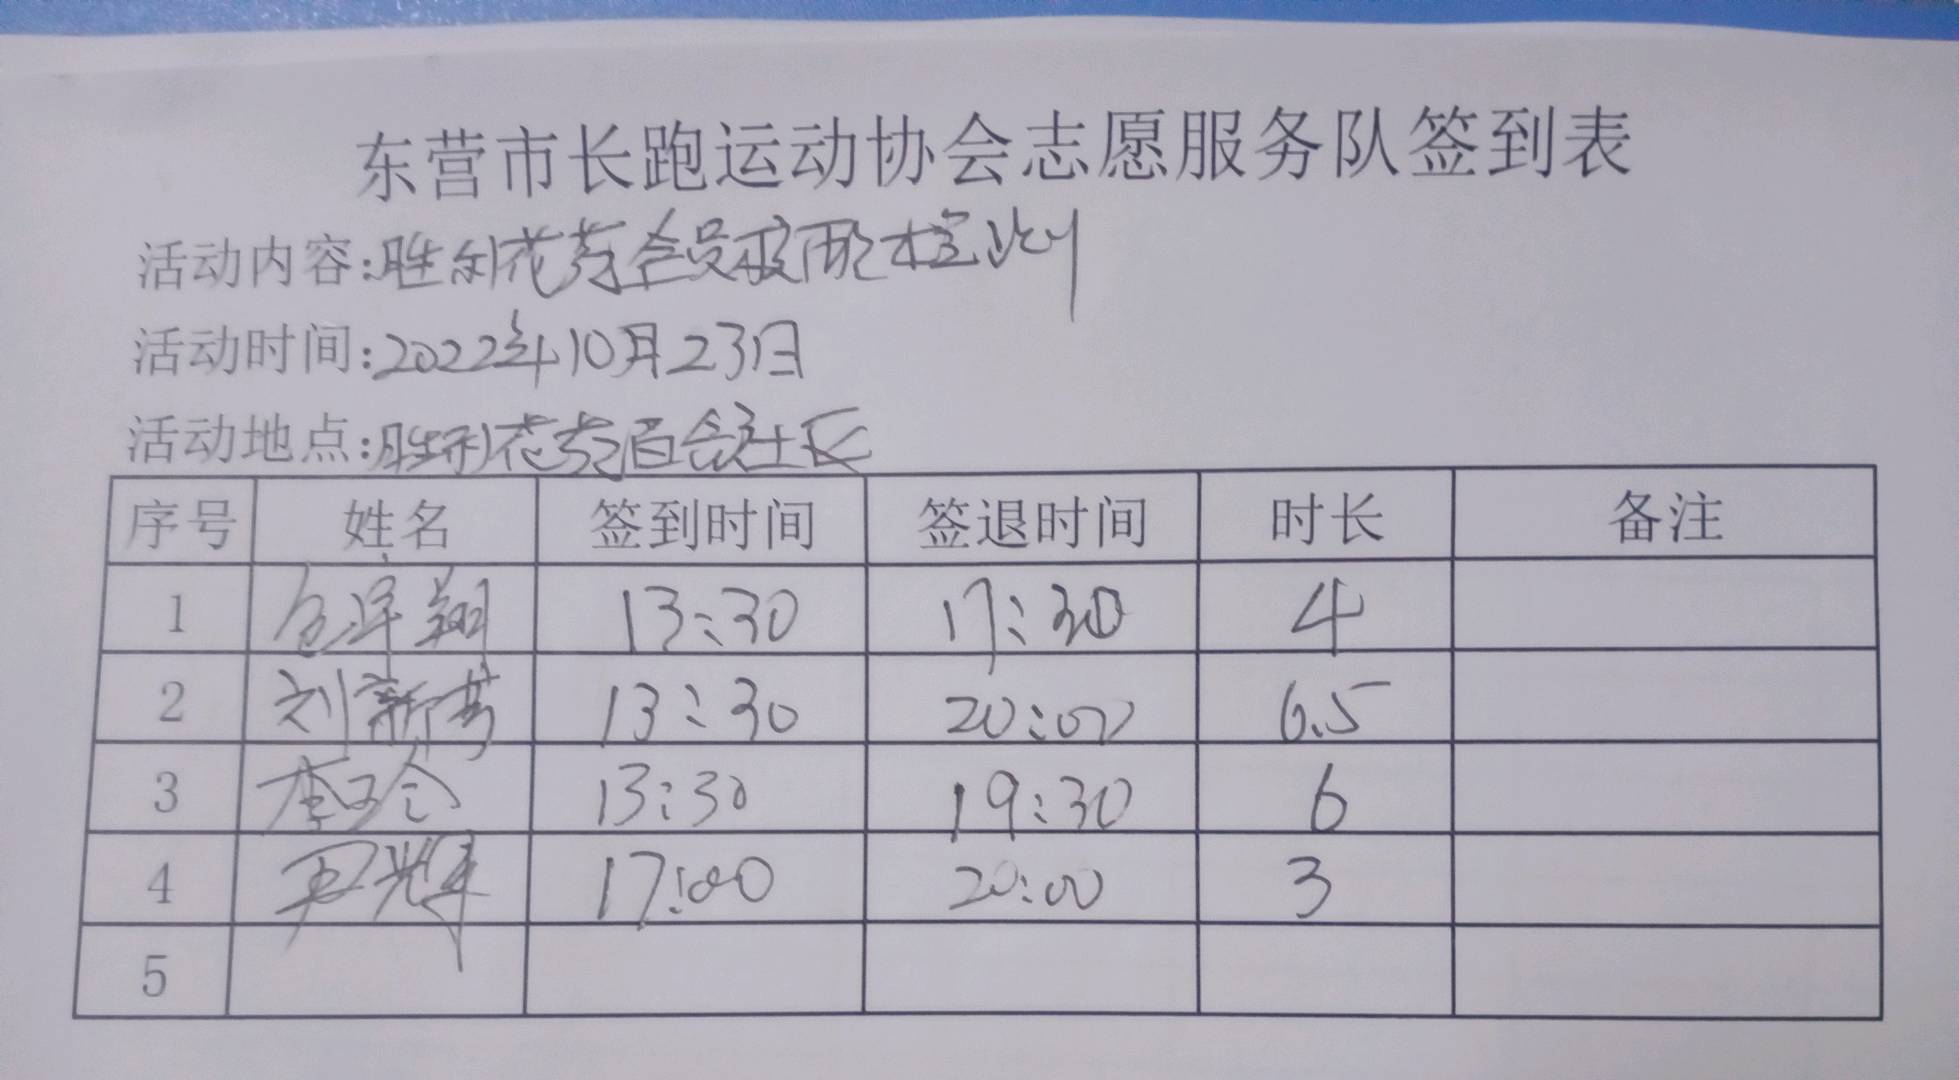 东营市长跑运动协会志愿服务队签到表
活动内容:胜利花苑全员核酸检测
活动时间:2022年10月23日
活动地点:胜利花苑百合社区
序号 姓名 签到时间 签退时间 时长 备注
1 翔 13:30 17:30 4
2 刘新芳 13:30 20:00 6.5
3 李 13:30 19:30 6
4 辉 17:00 20:00 3
5